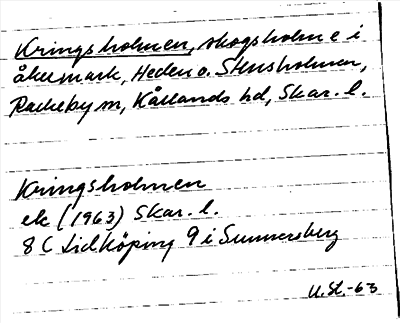 Kringsholmen, skogsholme i
åkermark, Heden o. Stensholmen,
Rackeby sn, Kållands hd, Skar. l.
Kringsholmen
ek (1963) Skar. l.
8 C Lidköping 9 i Sunnersberg
U.St.-63